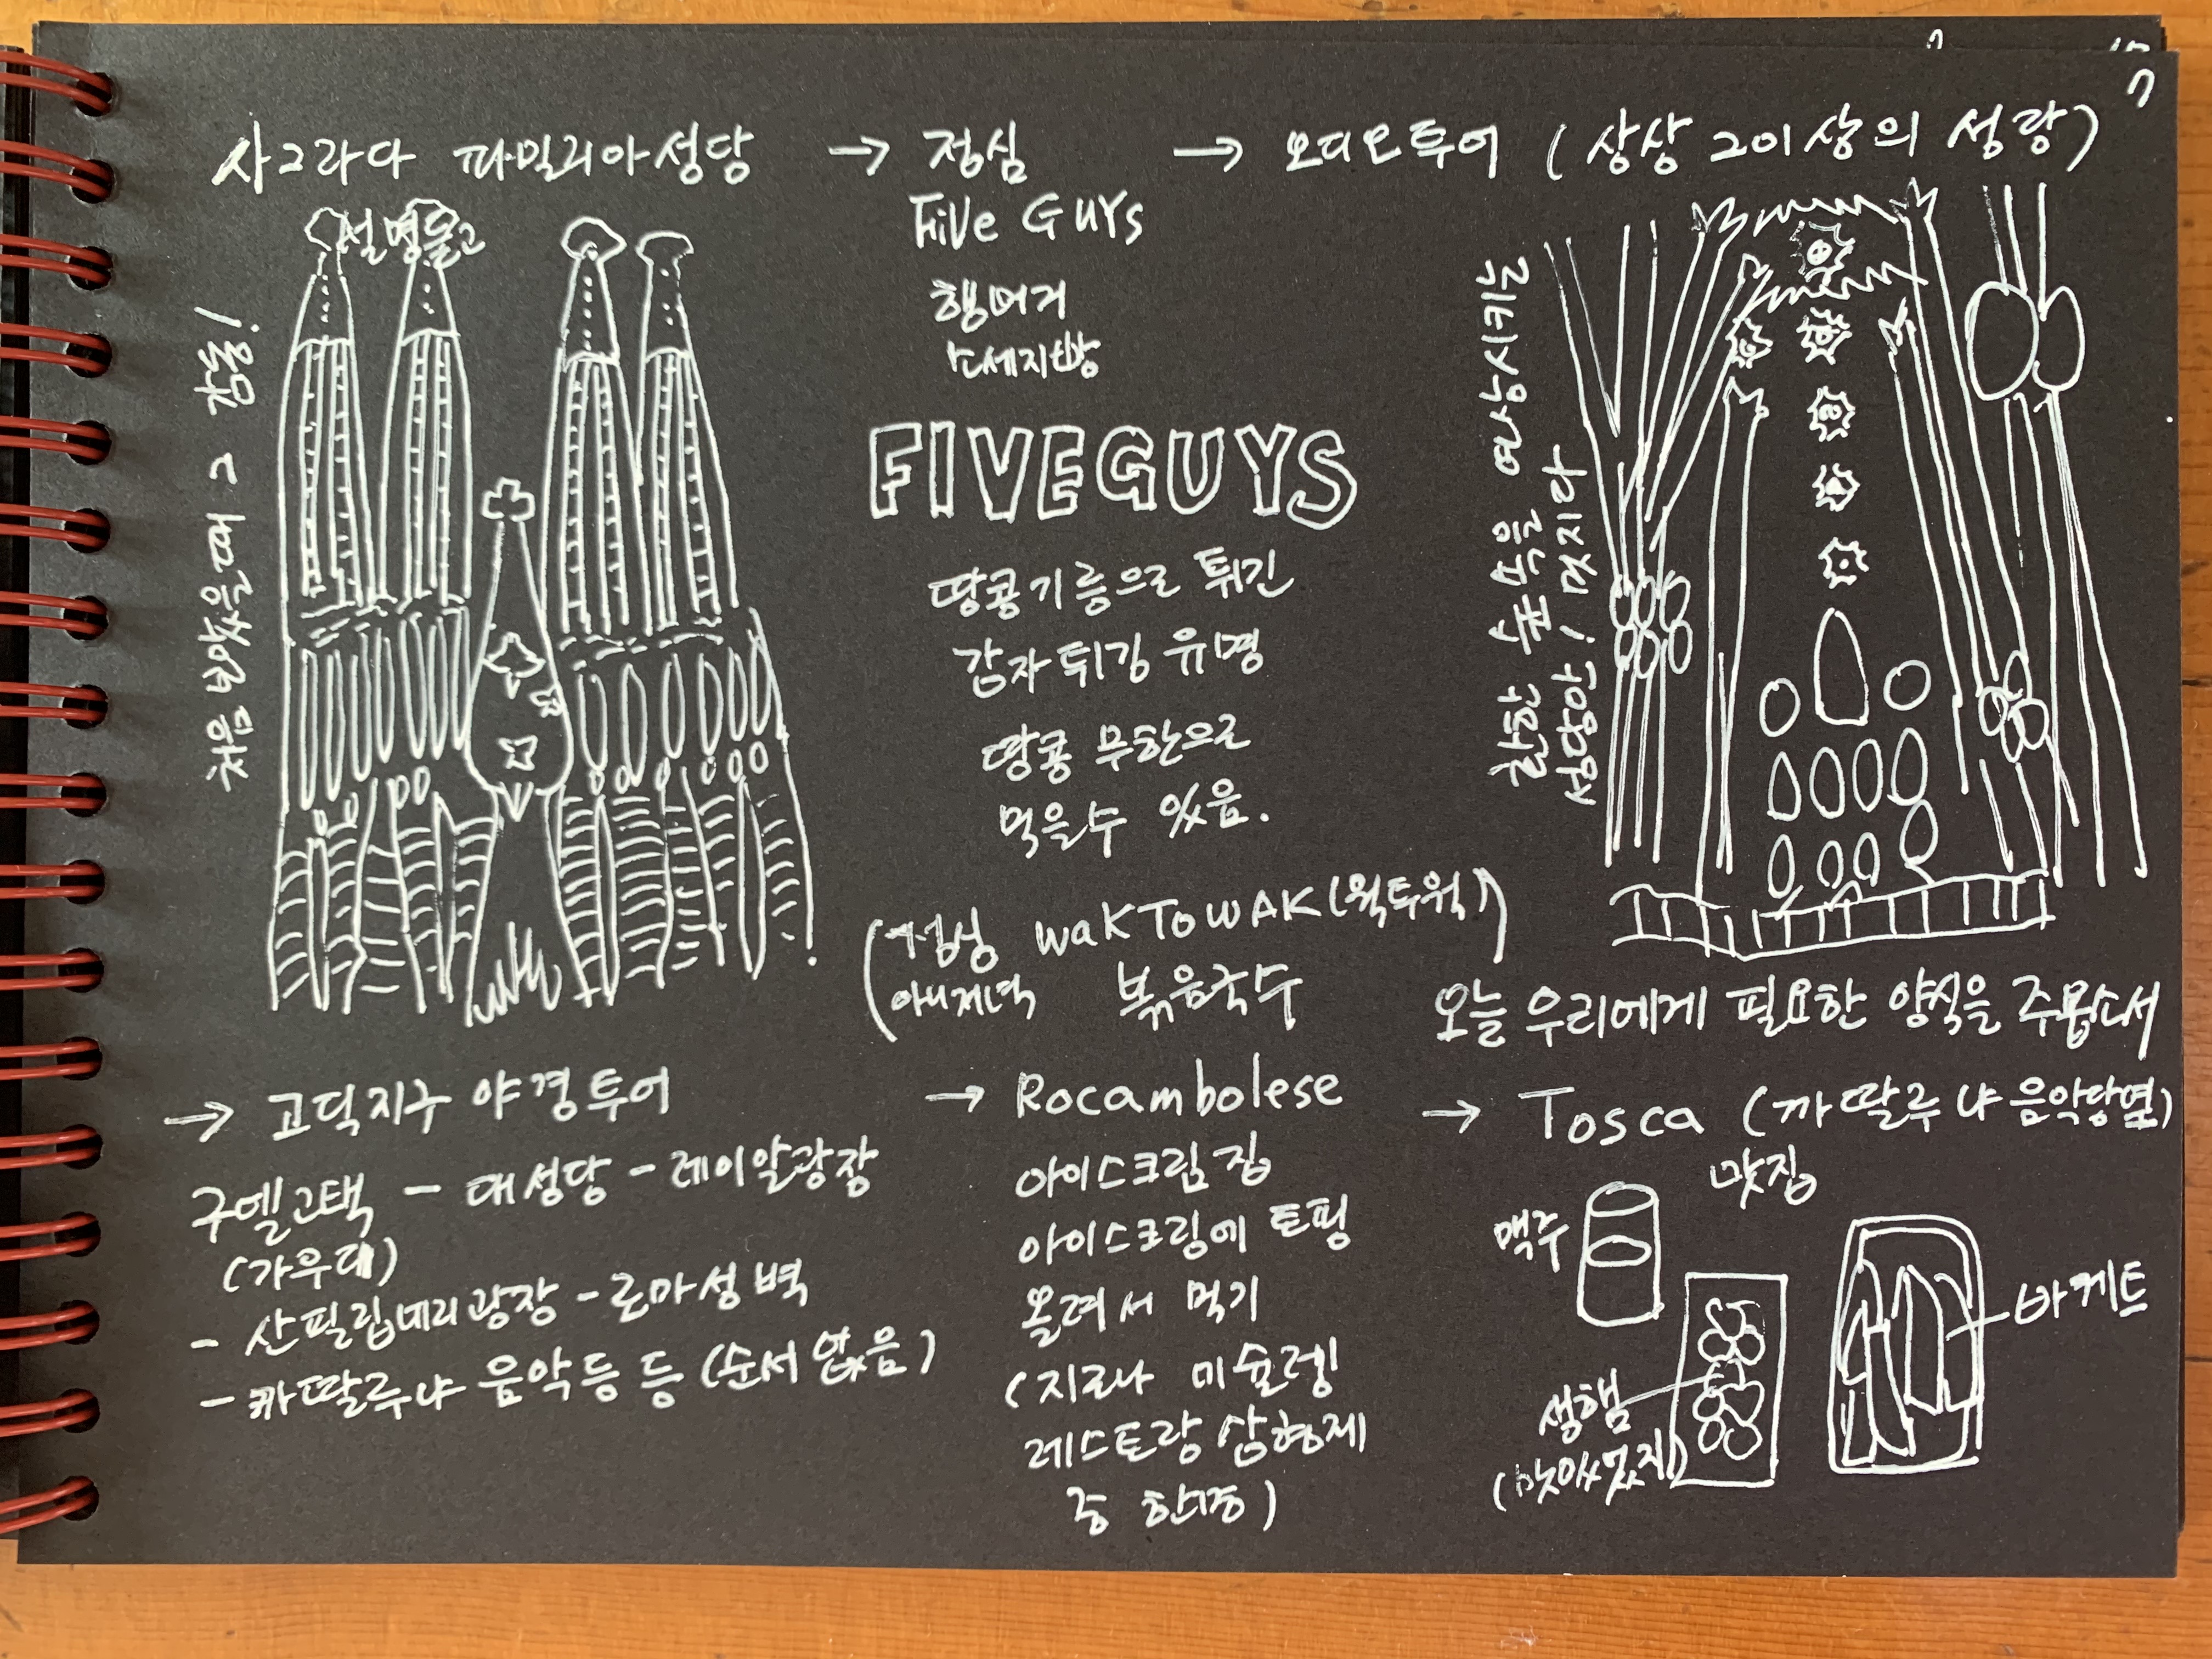 사그라다 파밀리아성당 → 점심 → 오디오투어 (상상 그 이상의 성당)
설명듣고
처음 보았을때 그 감동!
Five Guys
햄버거
소세지빵
FIVE GUYS
땅콩기름으로 튀긴
감자튀김 유명
땅콩 무한으로
먹을수 있음.
(점심 waKToWAK (웍투웍))
아니저녁 볶음국수
울창한 숲속을 연상시키는
성당안! 멋지다
오늘 우리에게 필요한 양식을 주옵소서
→ 고딕지구 야경투어
구엘고택 - 대성당 - 레이알광장
(가우디)
- 산필립네리광장 - 로마성벽
- 카딸루냐 음악등 등 (순서 없음)
→ Rocambolese
아이스크림 집
아이스크림에 토핑
올려서 먹기
(지로나 미슐렝
레스토랑 삼형제
중 한명)
→ Tosca (까딸루냐 음악당옆)
맛집
맥주
바케트
생햄